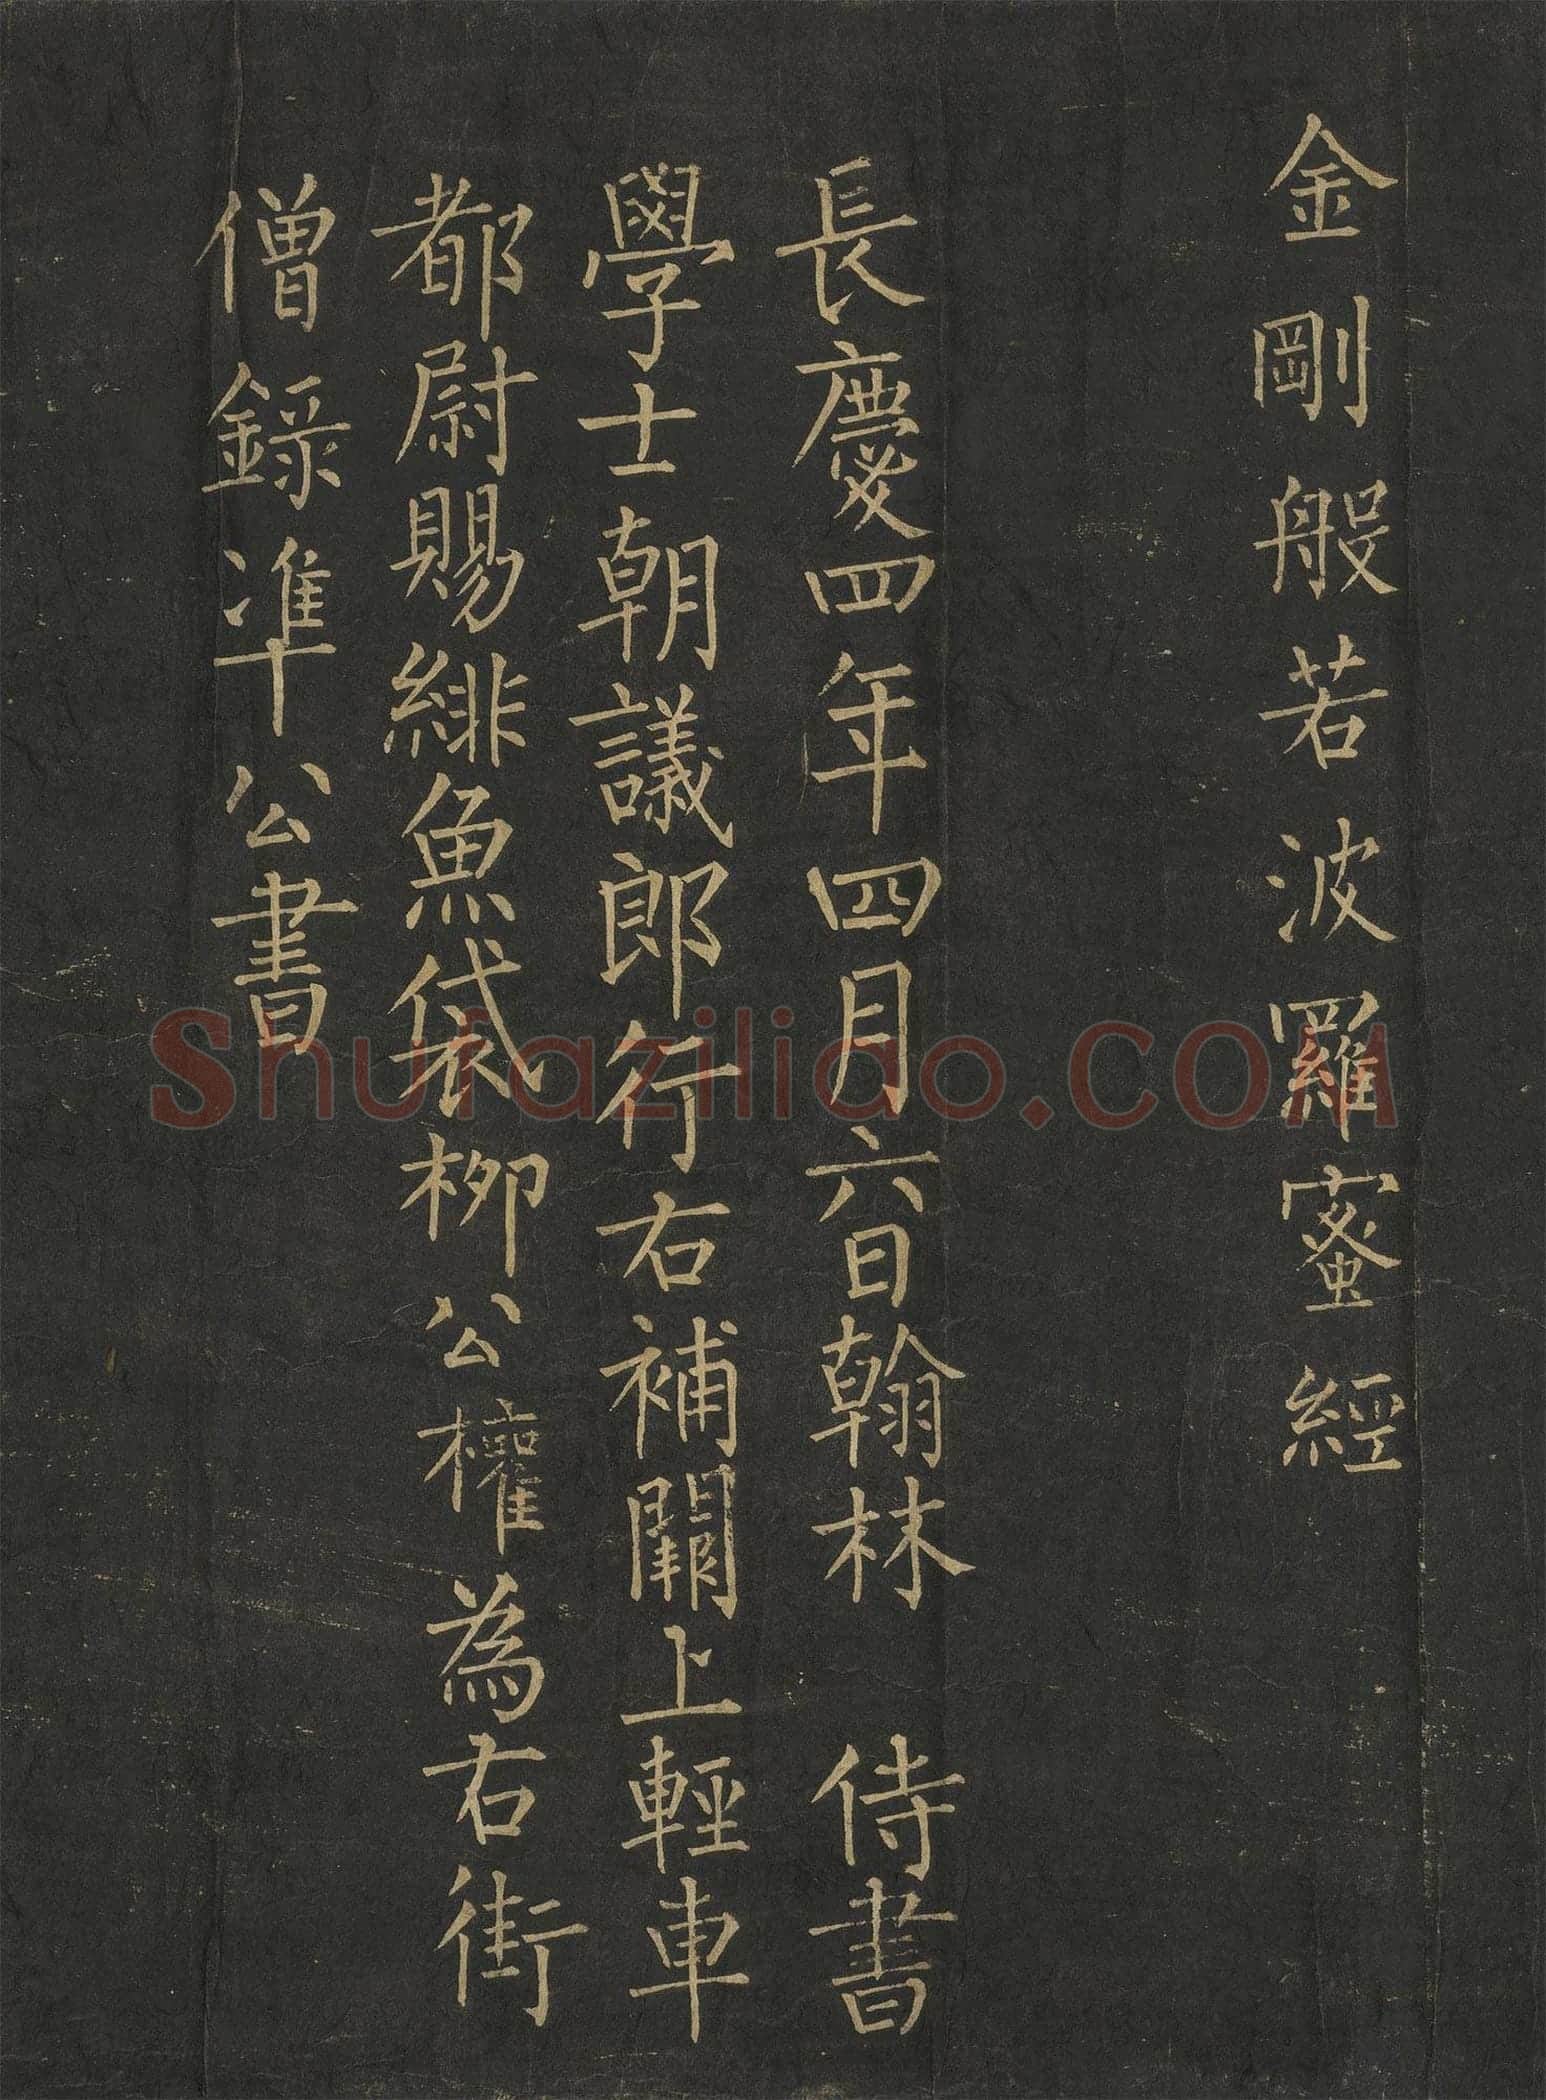 金剛般若波羅蜜經
長慶四年四月六日翰林 侍書
學士朝議郎行右補闕上輕車
都尉賜緋魚袋柳公權為右街
僧錄準公書
Shufaziliao.COM